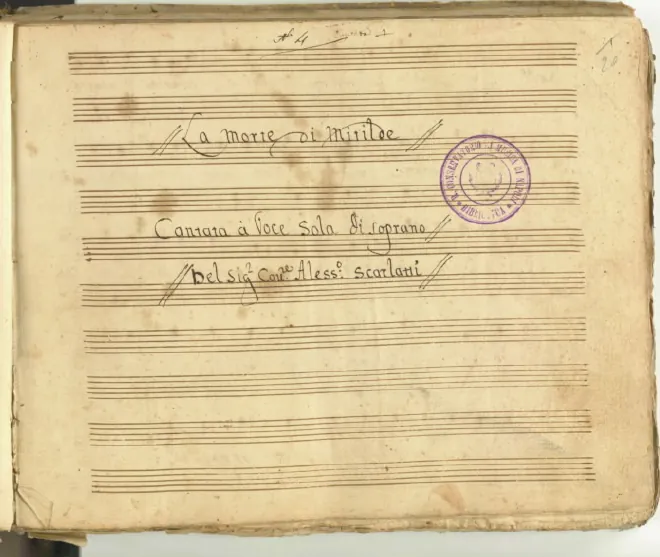 La Morte di Mitilde
Cantata à Voce Sola di Soprano
Del Sig.r Cav.re Aless.o Scarlatti